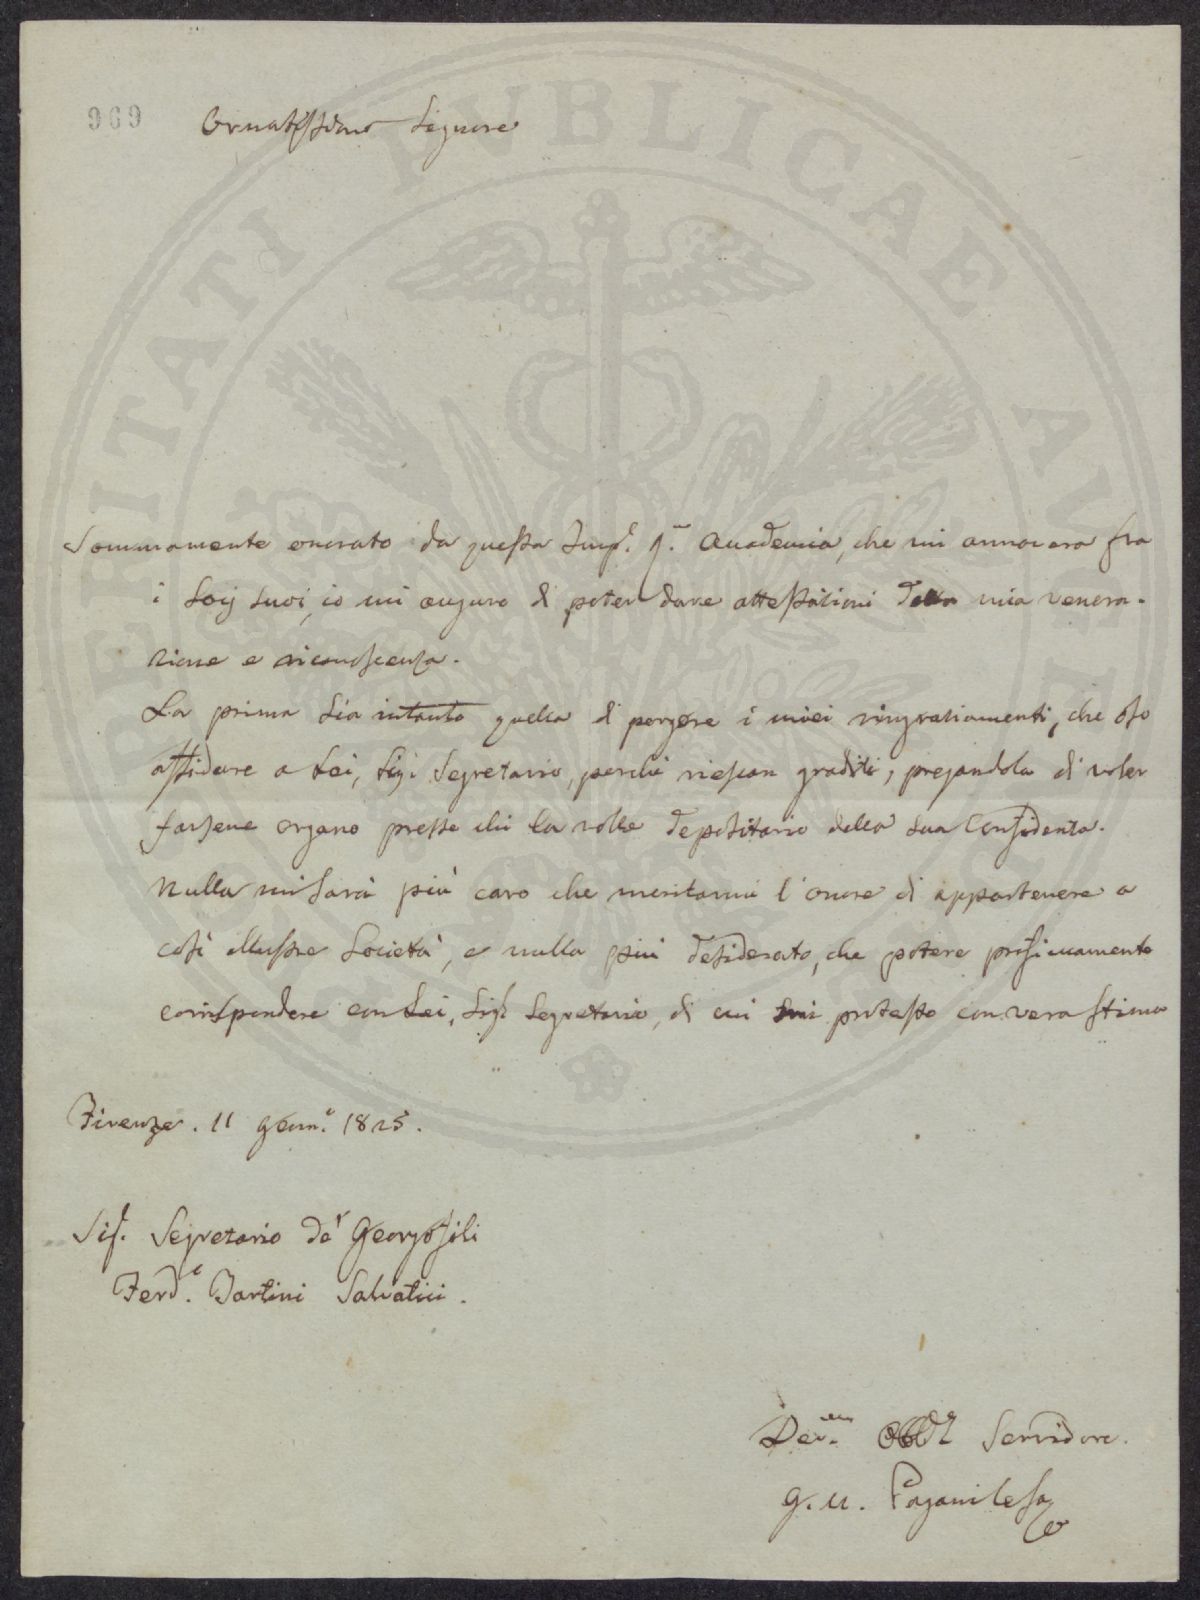 969
Ornatissimo Signore
PROSPERITATI PUBLICAE AUGENDAE
Sommamente onorato da questa Imp. Accademia, che mi annovera fra
i Socij suoi, io mi auguro di poter dare attestazioni della mia venera-
zione e riconoscenza.
La prima sia intanto quella di porgere i miei ringraziamenti, che oso
affidare a Lei, Sigr Segretario, perché riescan graditi, pregandola di voler
farsene organo presso chi la volle depositario della sua Confidenza.
Nulla mi sarà più caro che meritarmi l'onore di appartenere a
così illustre Società, e nulla più desiderato, che potere proficuamente
corrispondere con Lei, Sigr Segretario, di cui mi protesto con vera stima
Firenze. 11 Genn.o 1825.
Sigr. Segretario de' Georgofili
Ferd.o Tartini Salvatici.
Dev.mo Obbl. Servidore.
G. M. Paganilesa